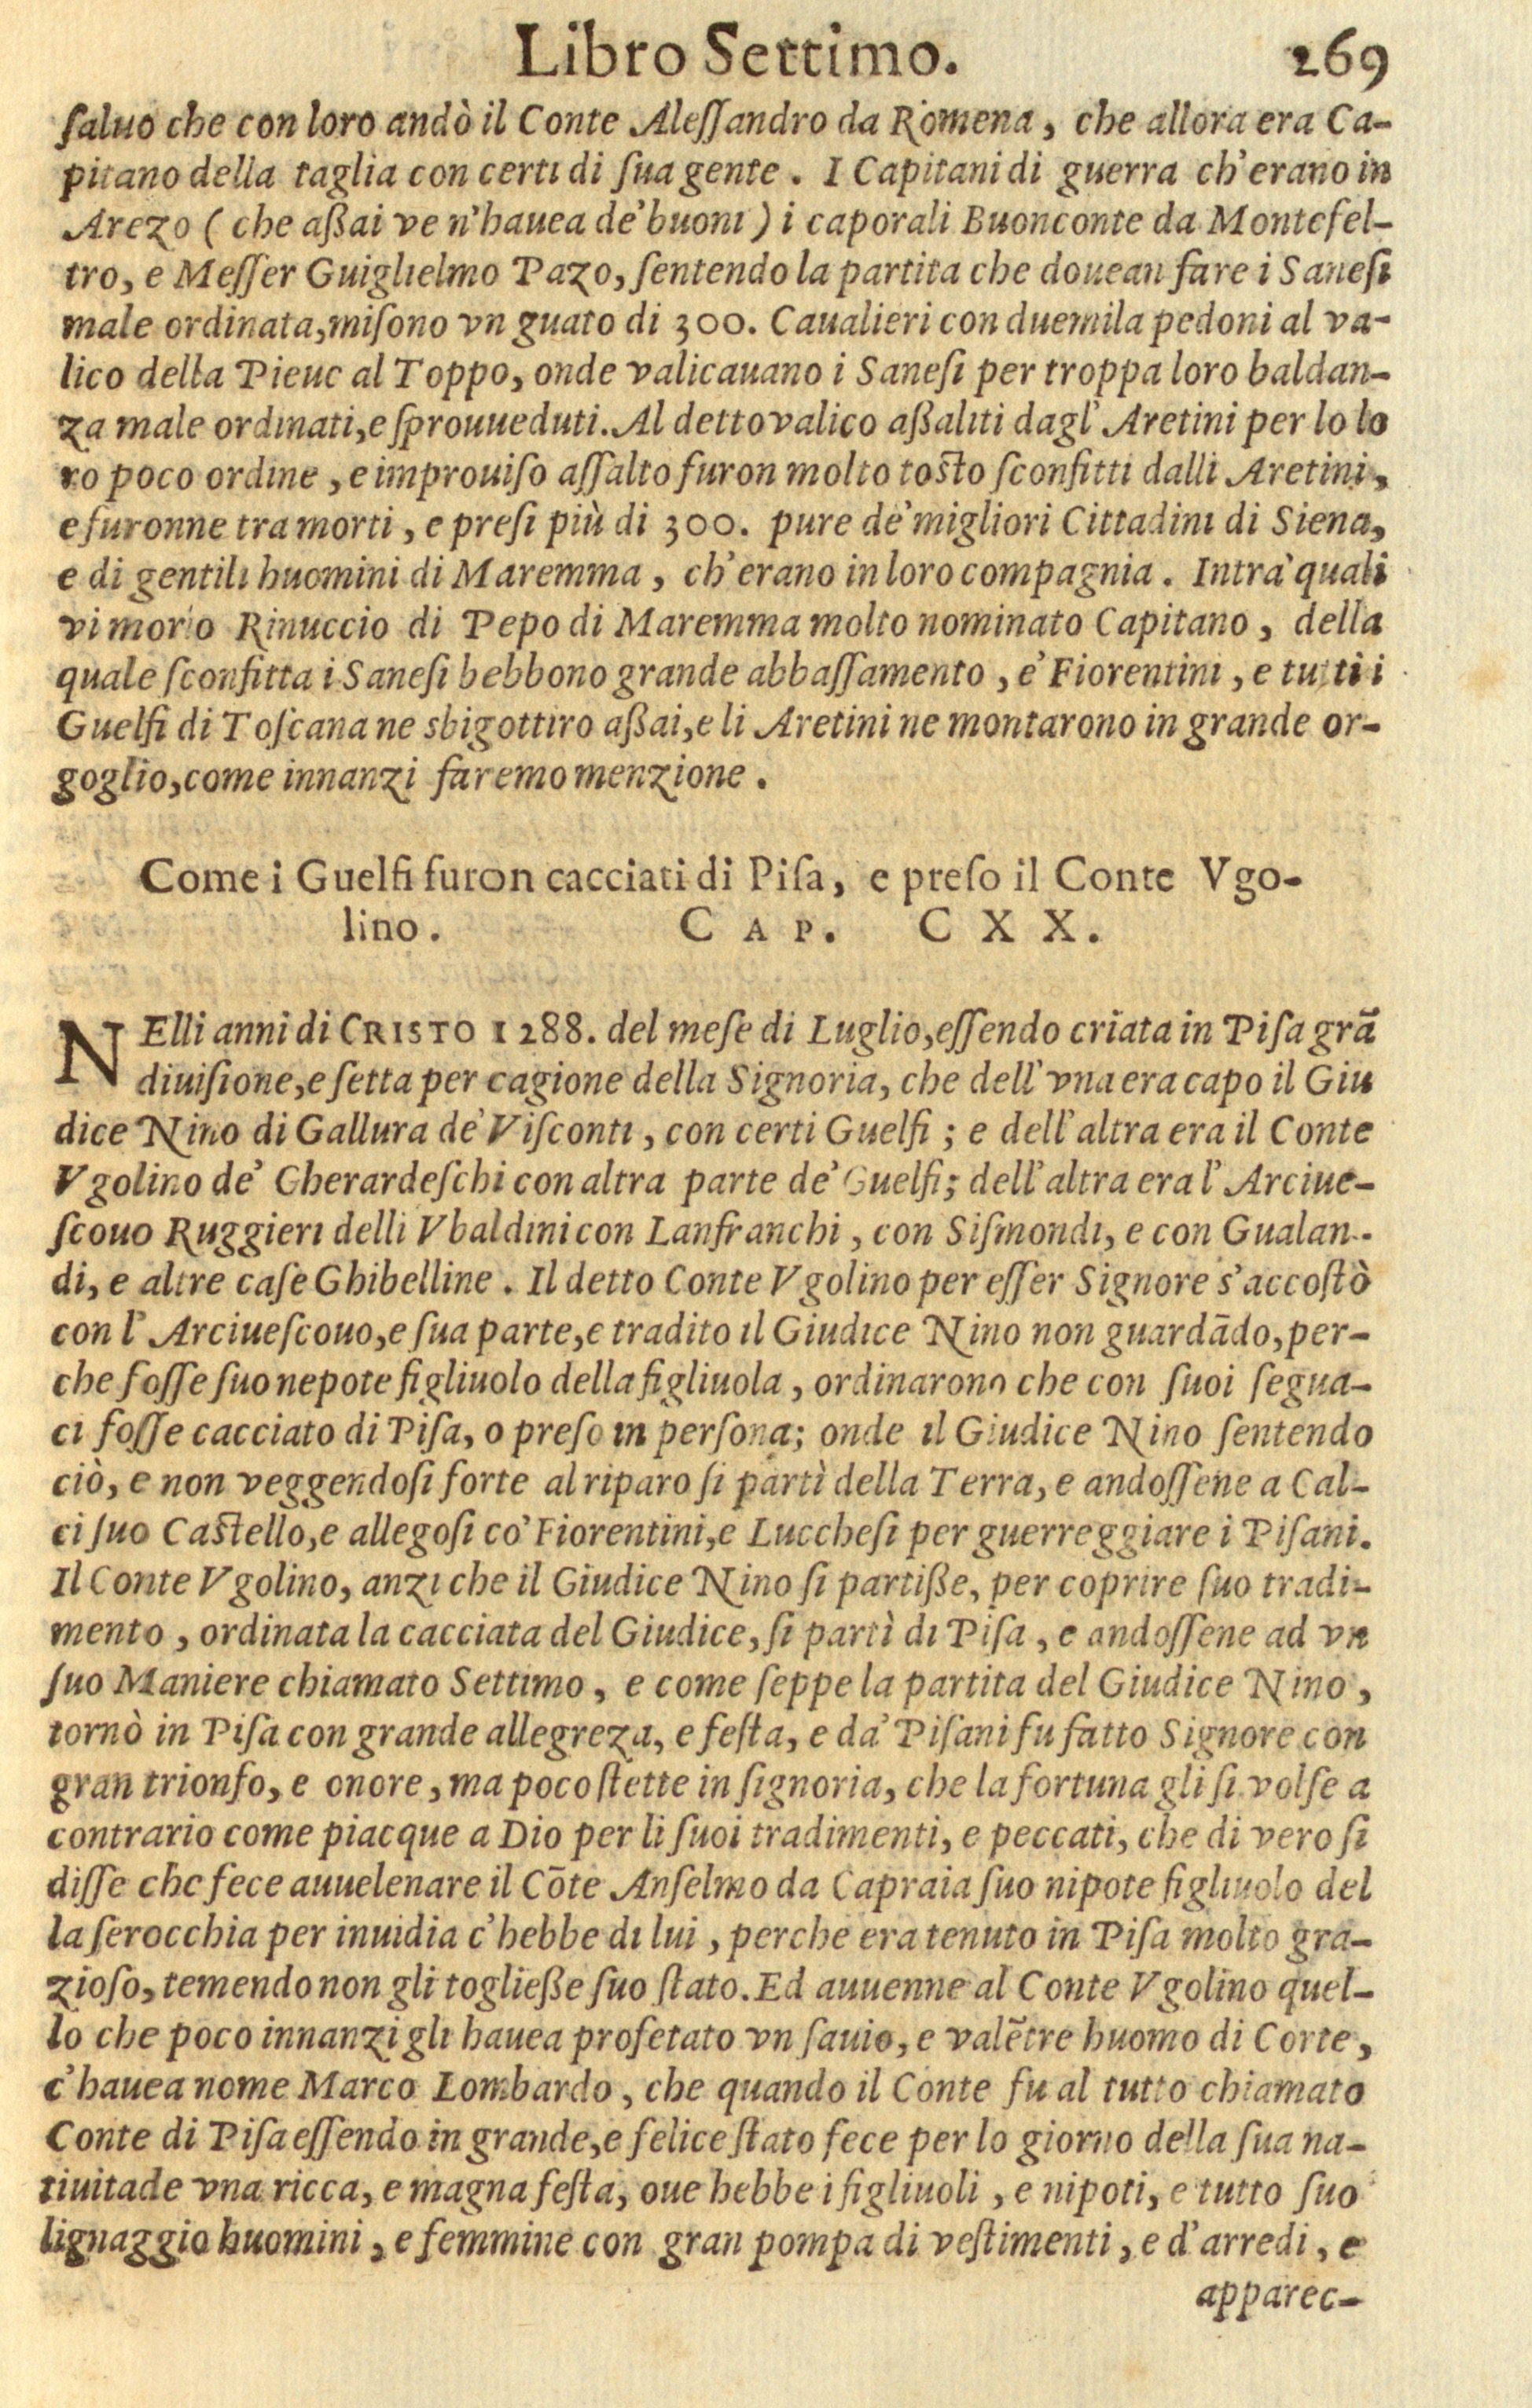 Libro Settimo. 269
ſaluo che con loro andò il Conte Aleſſandro da Romena, che allora era Ca-
pitano della taglia con certi di ſua gente. I Capitani di guerra ch'erano in
Arezo (che aßai ve n'hauea de' buoni) i caporali Buonconte da Montefel-
tro, e Meſſer Guiglielmo Pazo, ſentendo la partita che douean fare i Saneſi
male ordinata, miſono vn guato di 300. Caualieri con duemila pedoni al va-
lico della Pieue al Toppo, onde valicauano i Saneſi per troppa loro baldan-
za male ordinati, e ſprouueduti. Al detto valico aßaliti dagl' Aretini per lo lo
ro poco ordine, e improuiſo aſſalto furon molto toſto ſconfitti dalli Aretini,
e furonne tra morti, e preſi più di 300. pure de' migliori Cittadini di Siena,
e di gentili huomini di Maremma, ch'erano in loro compagnia. Intra' quali
vi morìo Rinuccio di Pepo di Maremma molto nominato Capitano, della
quale ſconfitta i Saneſi hebbono grande abbaſſamento, e' Fiorentini, e tutti i
Guelfi di Toſcana ne sbigottiro aßai, e li Aretini ne montarono in grande or-
goglio, come innanzi faremo menzione.
Come i Guelfi furon cacciati di Piſa, e preſo il Conte Vgo-
lino. CAP. CXX.
NElli anni di CRISTO 1288. del meſe di Luglio, eſſendo criata in Piſa grã
diuiſione, e ſetta per cagione della Signoria, che dell' vna era capo il Giu
dice Nino di Gallura de' Viſconti, con certi Guelfi; e dell' altra era il Conte
Vgolino de' Gherardeſchi con altra parte de' Guelfi; dell' altra era l' Arciue-
ſcouo Ruggieri delli Vbaldini con Lanfranchi, con Siſmondi, e con Gualan-
di, e altre caſe Ghibelline. Il detto Conte Vgolino per eſſer Signore s'accoſtò
con l' Arciueſcouo, e ſua parte, e tradito il Giudice Nino non guardãdo, per-
che foſſe ſuo nepote figliuolo della figliuola, ordinarono che con ſuoi ſegua-
ci foſſe cacciato di Piſa, o preſo in perſona; onde il Giudice Nino ſentendo
ciò, e non veggendoſi forte al riparo ſi partì della Terra, e andoſſene a Cal-
ci ſuo Caſtello, e allegoſi co' Fiorentini, e Luccheſi per guerreggiare i Piſani.
Il Conte Vgolino, anzi che il Giudice Nino ſi partiße, per coprire ſuo tradi-
mento, ordinata la cacciata del Giudice, ſi partì di Piſa, e andoſſene ad vn
ſuo Maniere chiamato Settimo, e come ſeppe la partita del Giudice Nino,
tornò in Piſa con grande allegreza, e feſta, e da' Piſani fu fatto Signore con
gran trionfo, e onore, ma poco ſtette in ſignoria, che la fortuna gli ſi volſe a
contrario come piacque a Dio per li ſuoi tradimenti, e peccati, che di vero ſi
diſſe che fece auuelenare il Cõte Anſelmo da Capraia ſuo nipote figliuolo del
la ſerocchia per inuidia c'hebbe di lui, perche era tenuto in Piſa molto gra-
zioſo, temendo non gli togließe ſuo ſtato. Ed auuenne al Conte Vgolino quel-
lo che poco innanzi gli hauea profetato vn ſauio, e valẽtre huomo di Corte,
c'hauea nome Marco Lombardo, che quando il Conte fu al tutto chiamato
Conte di Piſa eſſendo in grande, e felice ſtato fece per lo giorno della ſua na-
tiuitade vna ricca, e magna feſta, oue hebbe i figliuoli, e nipoti, e tutto ſuo
lignaggio huomini, e femmine con gran pompa di veſtimenti, e d' arredi, e
apparec-